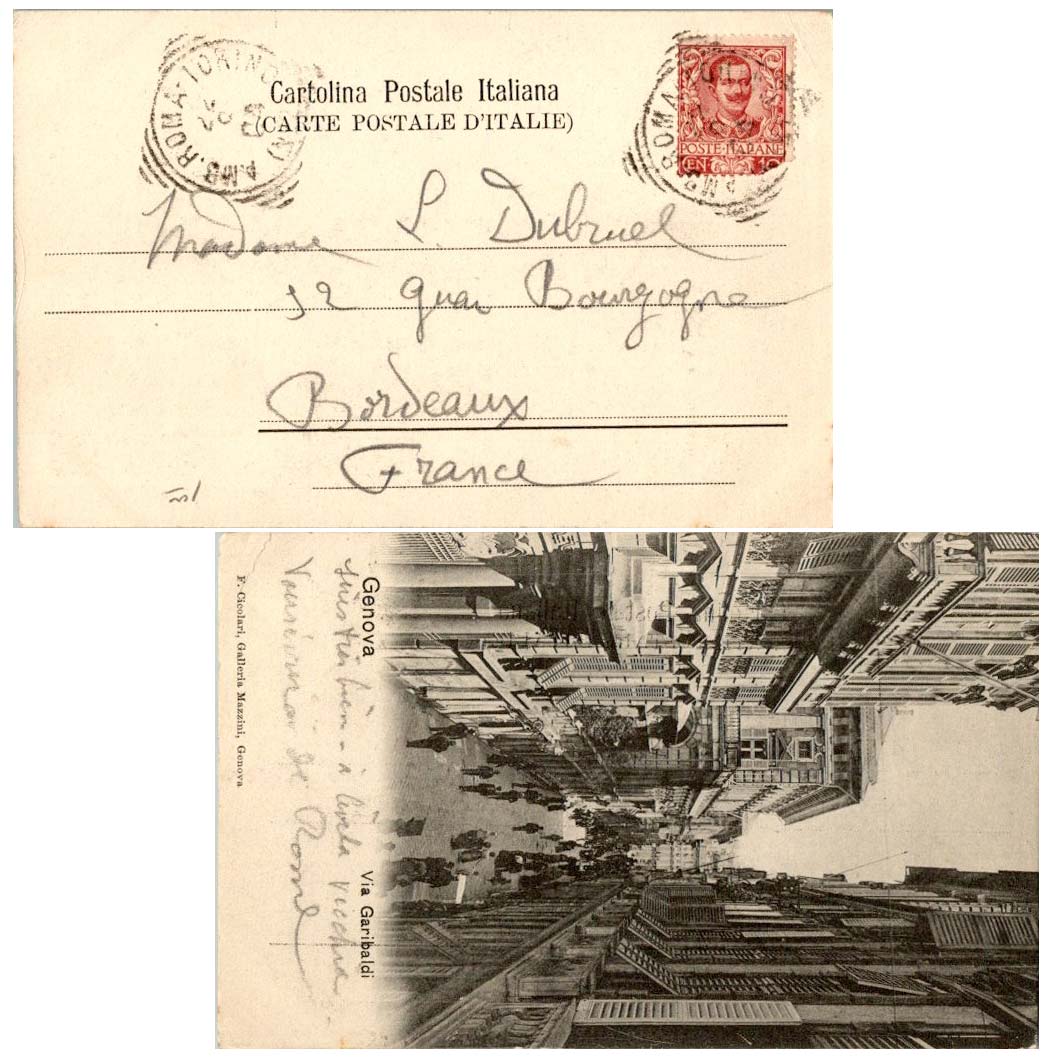 Cartolina Postale Italiana
(CARTE POSTALE D'ITALIE)
AMB. ROMA-TORINO
AMB. ROMA-
POSTE·ITALIANE
CEN 10
Madame L. Dubruel
12 quai Bourgogne
Bordeaux
France
Genova Via Garibaldi
suis très bien à Civita Vecchia
de Rome
F. Cicolari, Galleria Mazzini, Genova